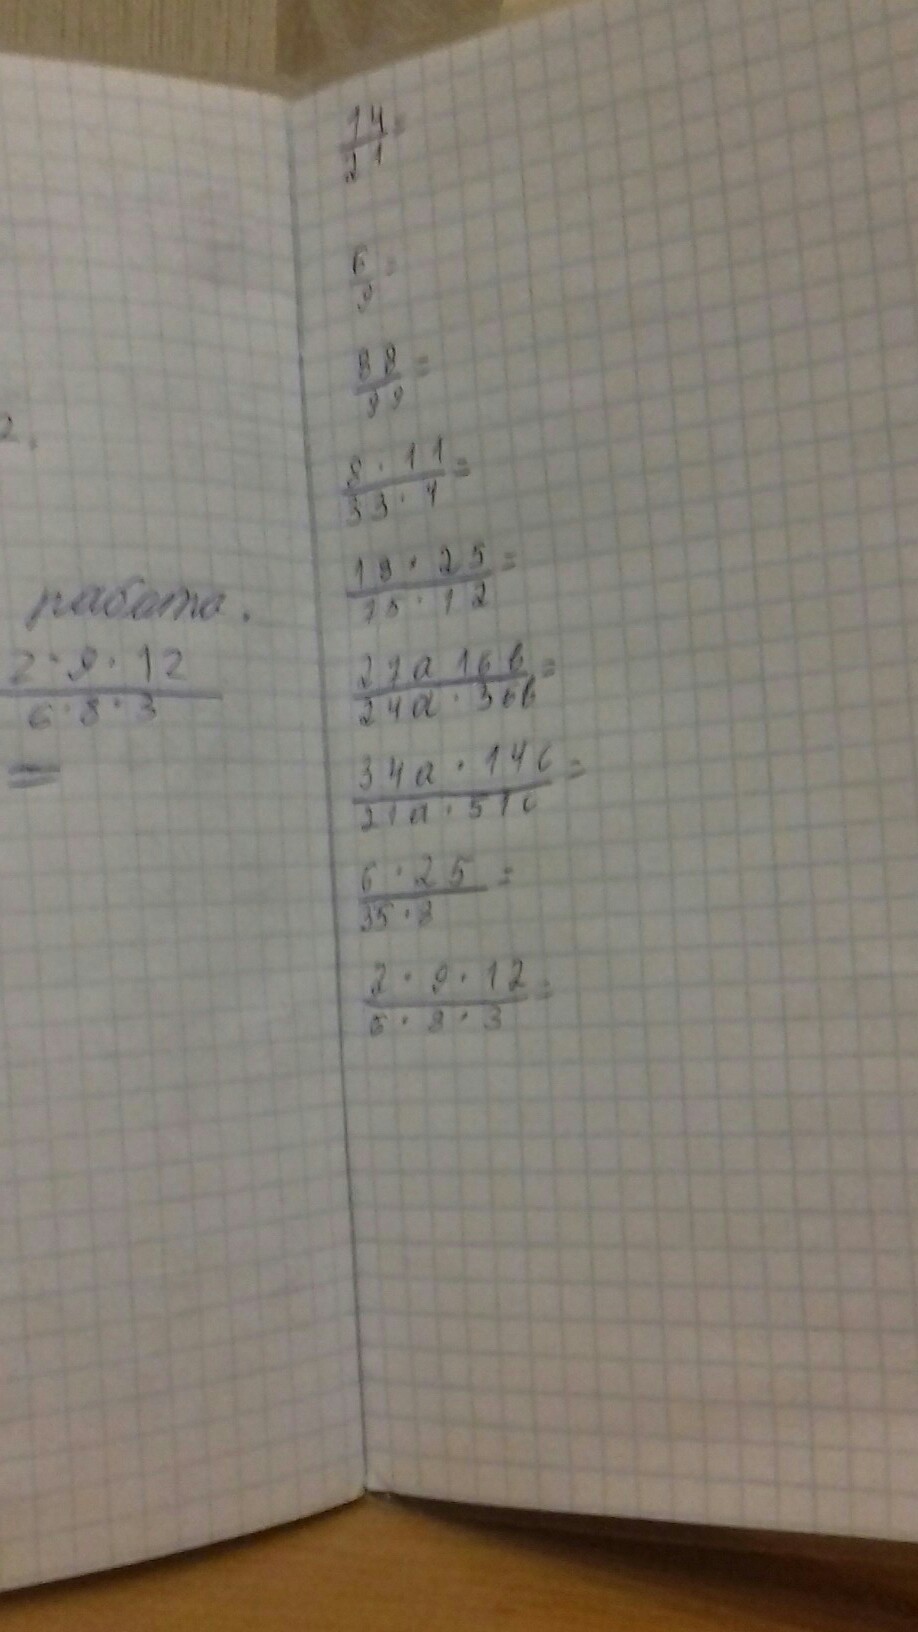 2.
работа.
2·9·12
6·8·3
=
14
21 =
6
9 =
88
99 =
8·11
33·4 =
18·25
15·12 =
27a 16в
24a·36в =
34a·14c
21a·51c =
6·25
35·8 =
2·9·12
6·8·3 =